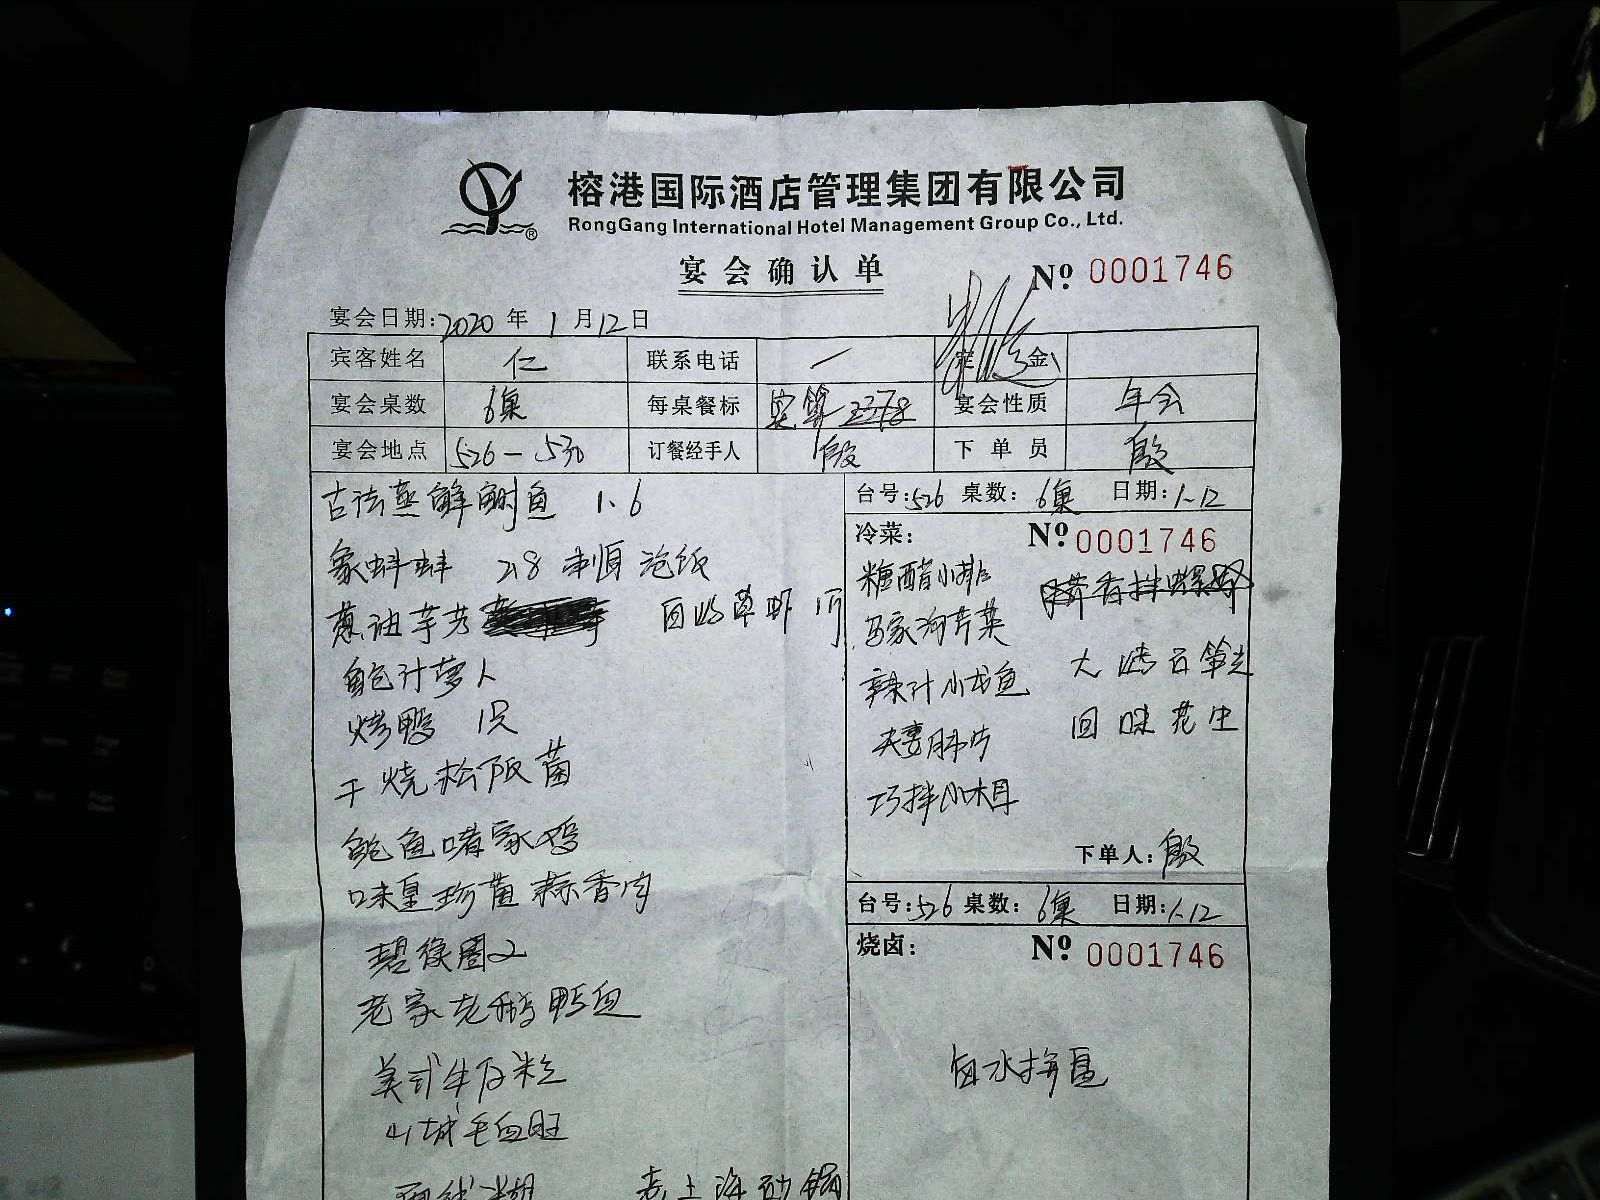 榕港国际酒店管理集团有限公司
RongGang International Hotel Management Group Co., Ltd.
宴会确认单
№ 0001746
宴会日期:2020年1月12日
宾客姓名 仁 联系电话 一 定金
宴会桌数 6桌 每桌餐标 实算 2278 宴会性质 年会
宴会地点 526-530 订餐经手人 殷 下单员 殷
古法蒸鲥鱼 1.6
象蚌 28 泡纸
葱油芋艿
鲍汁萝
烤鸭 1只
干烧松阪菌
鲍鱼嗜家鸡
味皇珍菌蒜香肉
碧绿圈2
老家老鹅鸭血
美式牛仔粒
山城毛血旺
老上海
台号:526 桌数:6桌 日期:1-12
冷菜:
№ 0001746
糖醋小排
马家沟芹菜
辣汁小龙鱼
夫妻肺片
回味花生
巧拌小木耳
下单人:殷
台号:526 桌数:6桌 日期:1-12
烧卤:
№ 0001746
卤水拼盘